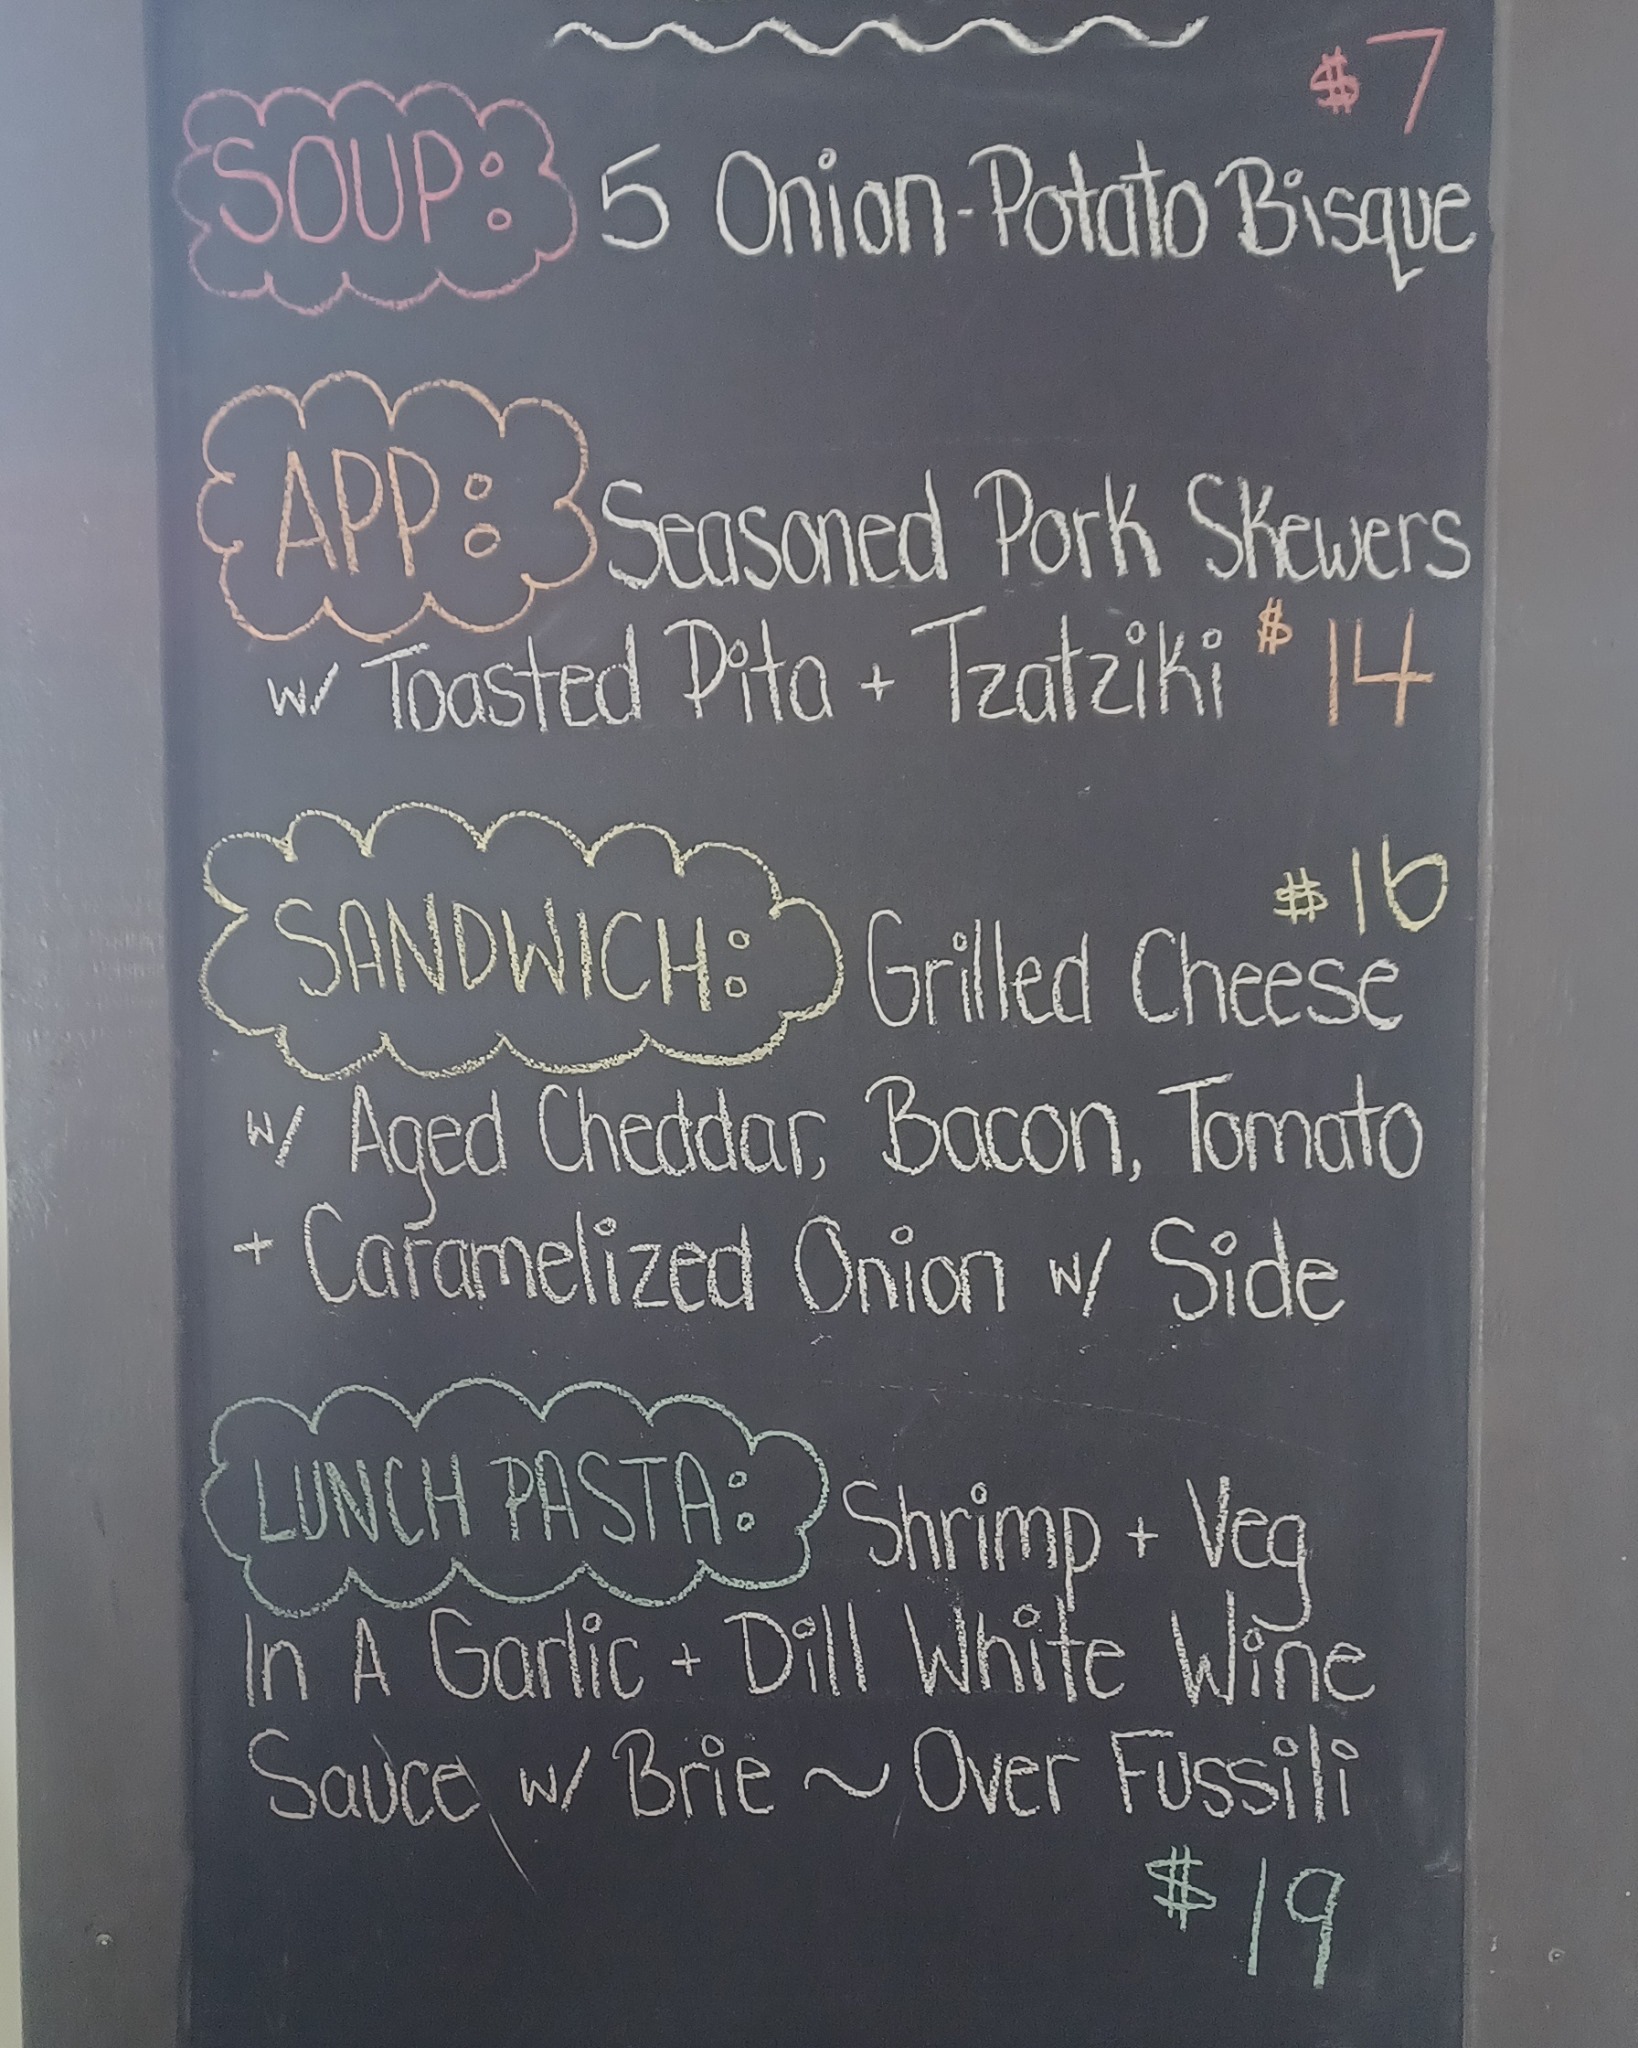 $7
SOUP: 5 Onion-Potato Bisque
APP: Seasoned Pork Skewers
w/ Toasted Pita + Tzatziki $14
$16
SANDWICH: Grilled Cheese
w/ Aged Cheddar, Bacon, Tomato
+ Caramelized Onion w/ Side
LUNCH PASTA: Shrimp + Veg
In A Garlic + Dill White Wine
Sauce w/ Brie ~ Over Fussili
$19